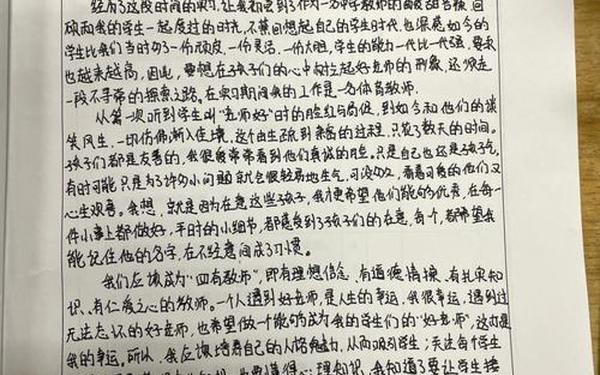 经历了这段时间的实习,让我初步感受到了作为一名中学教师的酸甜苦辣,回
顾和我的学生一起度过的时光,不禁回想起自己的学生时代,也深感如今的
学生比我们当时多一份顽皮、一份灵活、一份大胆,学生的能力一代比一代强,要求
也越来越高,因此,要想在孩子们的心中树立起好老师的形象,还须走
一段不寻常的探索之路。在实习期间我的工作是一名体育教师.
从第一次听到学生叫“老师好”时的脸红与局促,到如今和他们的谈
笑风生,一切仿佛渐入佳境,这个由生疏到亲密的过程,只花了数天的时间。
孩子们都是友善的,我很疲常常看到他们真诚的月色。只是自己也还是孩子气,
有时可能只是为了许少小问题就会很轻易地生气,可没多久,看着可爱的他们又
心生欢喜。我想,就是因为在意这些孩子,我才更希望他们能够优秀,在每一
件小事上都做好,平时的小细节,都感受到了孩子们的在意,每个,都希望我
能记住他的名字,在不经意间成了习惯。
我们应该成为“四有教师”,即有理想信念、有道德情操、有扎实知
识、有仁爱之心的教师。一个人遇到好老师,是人生的幸运,我很幸运,遇到过
无法忘怀的好老师,也希望做一个能够成为我的学生们的“好老师”,这也是
我的幸运。所以,我应该培养自己的人格魅力,从而吸引学生;关注每个学生
要懂得心理知识,我知道了要让学生接